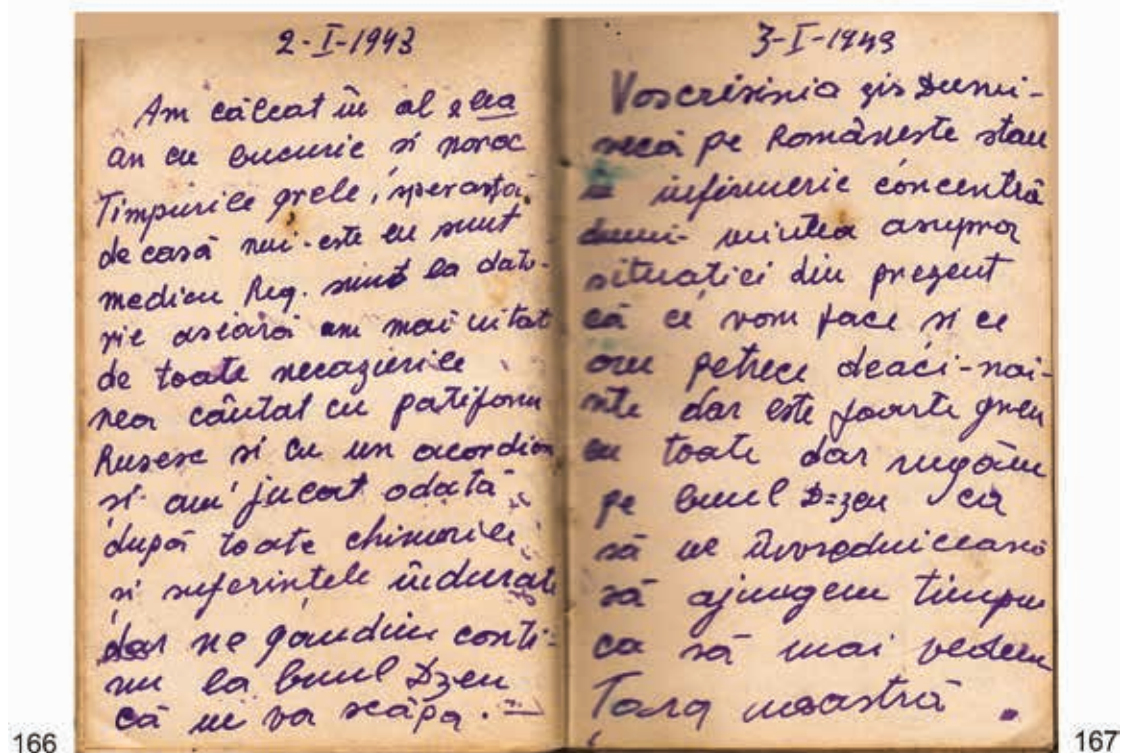 2-I-1943
Am călcat în al 2 lea
an cu bucurie si noroc
Timpurile grele, speranța
de casă nui-este eu sunt
medicu Reg. sunt la dato-
rie aseară am mai uitat
de toate necazurile
nea cântat cu patifonu
Rusesc si cu un acordion
si am jucat odată
după toate chinurile
si suferintele îndurate
dar ne gandim conti-
nu la bunul Dzeu
că ne va scăpa.
3-I-1943
Voscrisinia zis Dumi-
necă pe Românește stau
infirmerie concentră
mintea asupra
situatiei din prezent
că ce vom face si ce
om petrece deaci-nai-
nte dar este foarte greu
cu toate dar rugăm
pe bunul D=zeu ca
să ne învredniciască
să ajungem timpu
ca să mai vedem
Tara noastră.
166
167